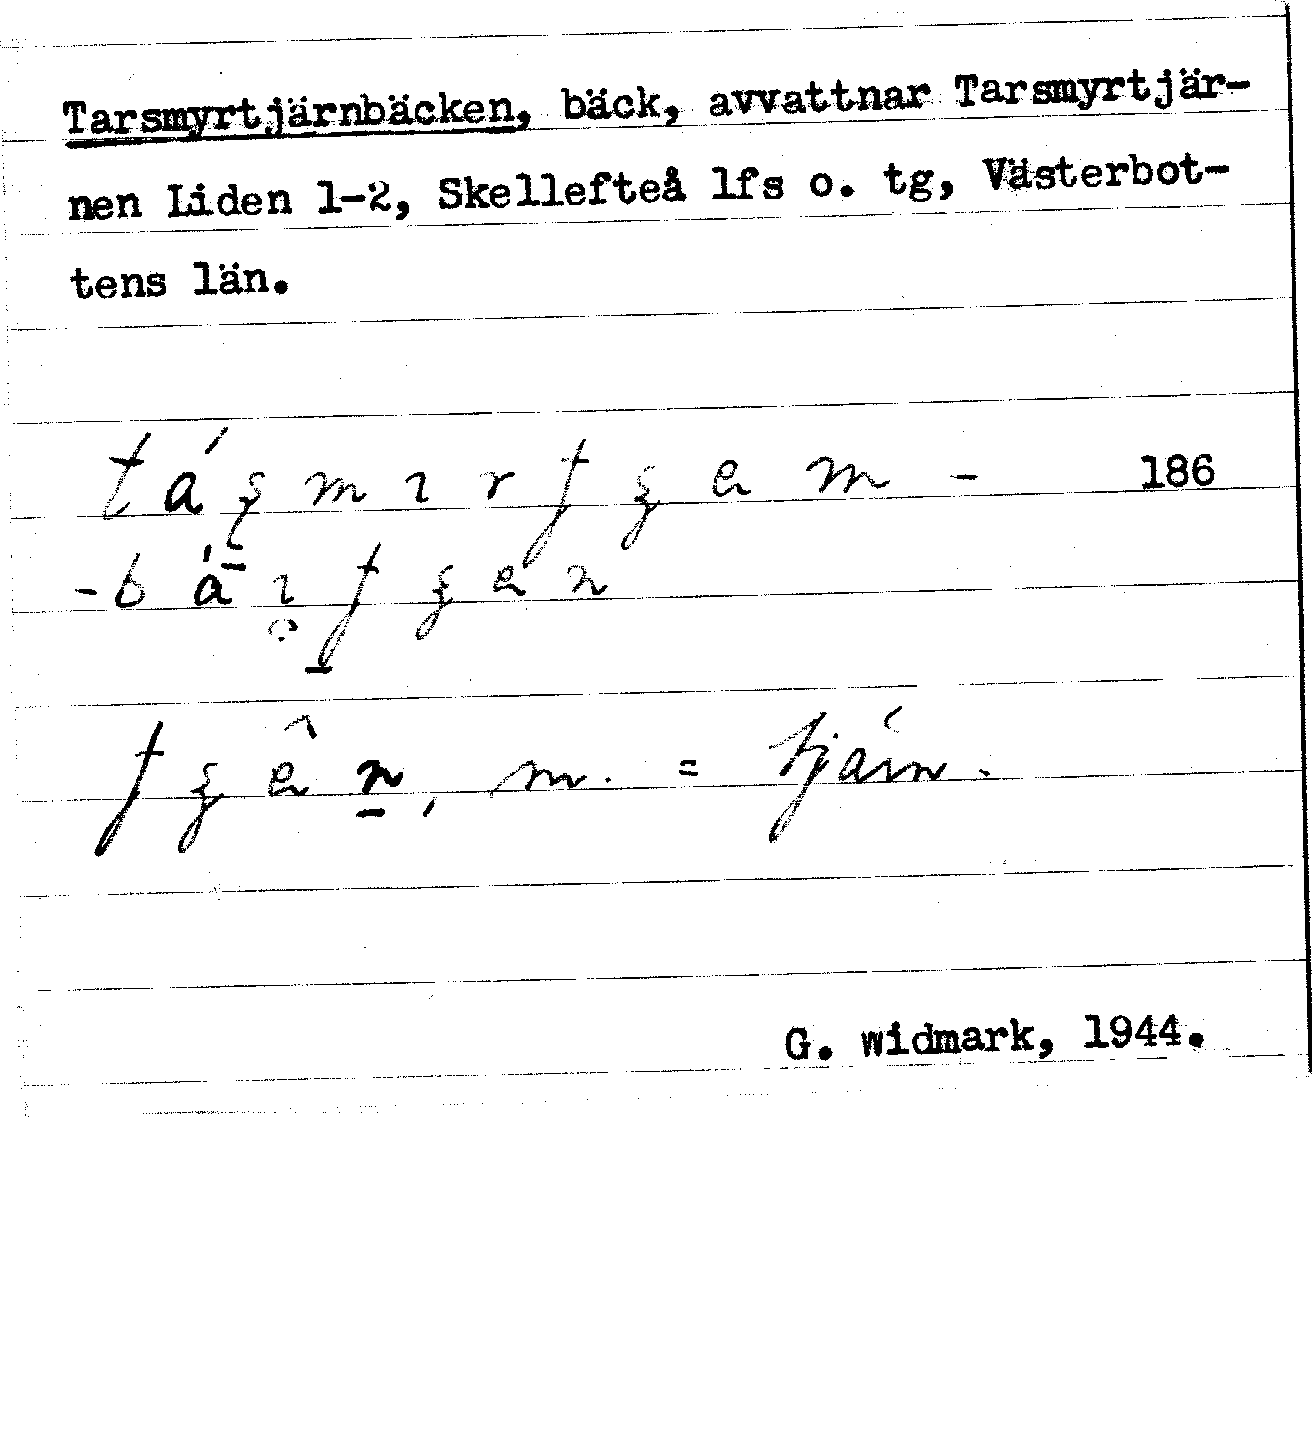 Tarsmyrtjärnbäcken, bäck, avvattnar Tarsmyrtjär-
nen Liden 1-2, Skellefteå lfs o. tg, Västerbot-
tens län.
186
m. = tjärn.
G. widmark, 1944.